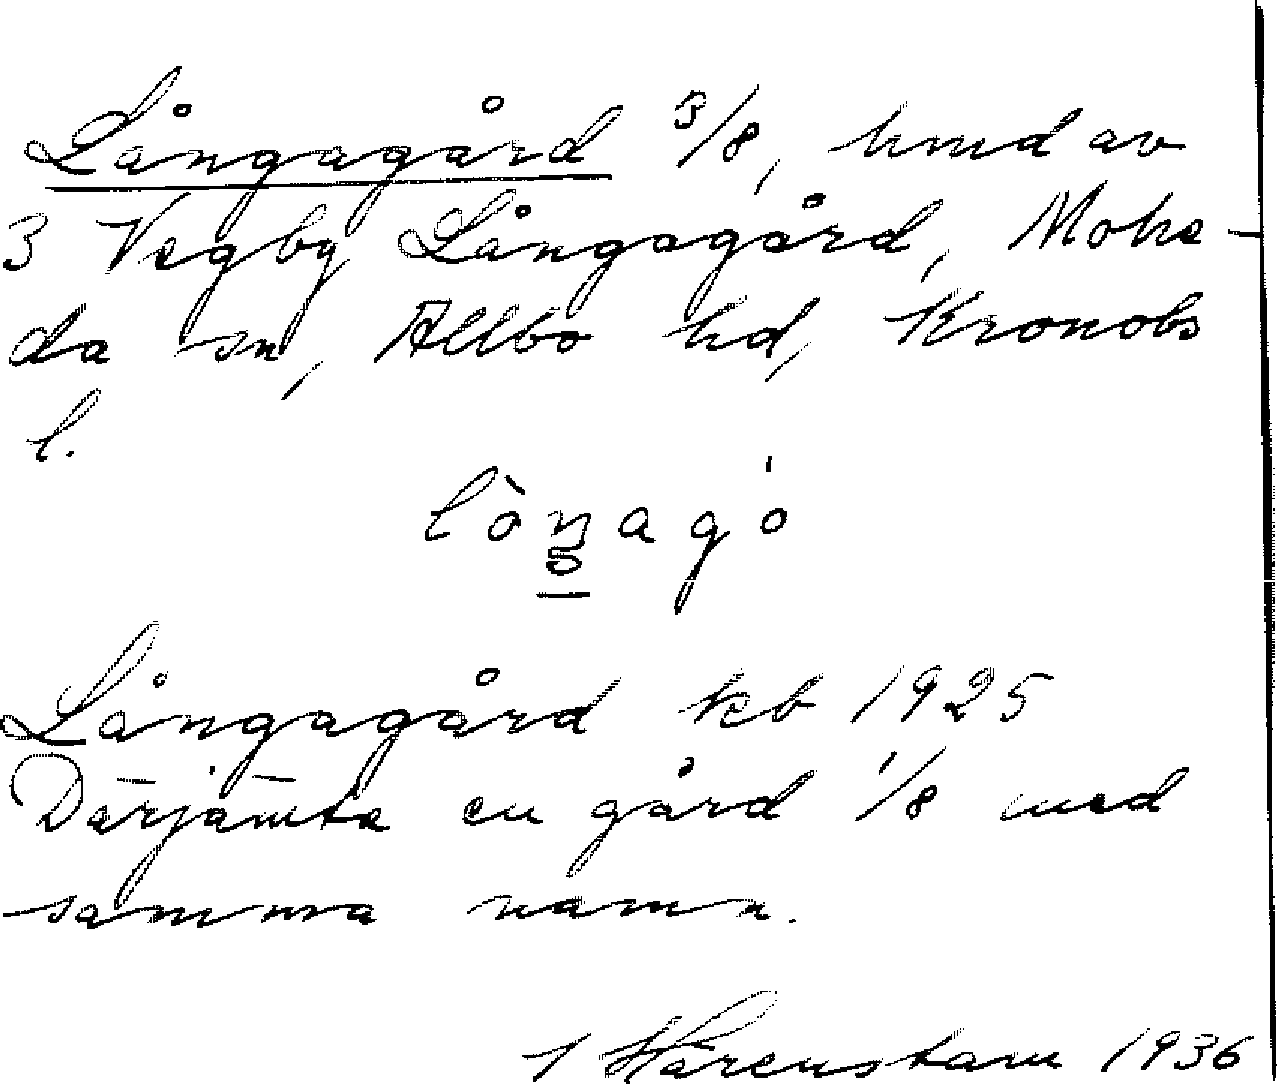 Långagård 3/8, hmd av
3 Vegby Långagård, Mohe-
da sn, Allbo hd, Kronobs
l.
lòŋagó
Långagård kb 1925
Därjämte en gård 1/8 med
samma namn.
Härenstam 1936